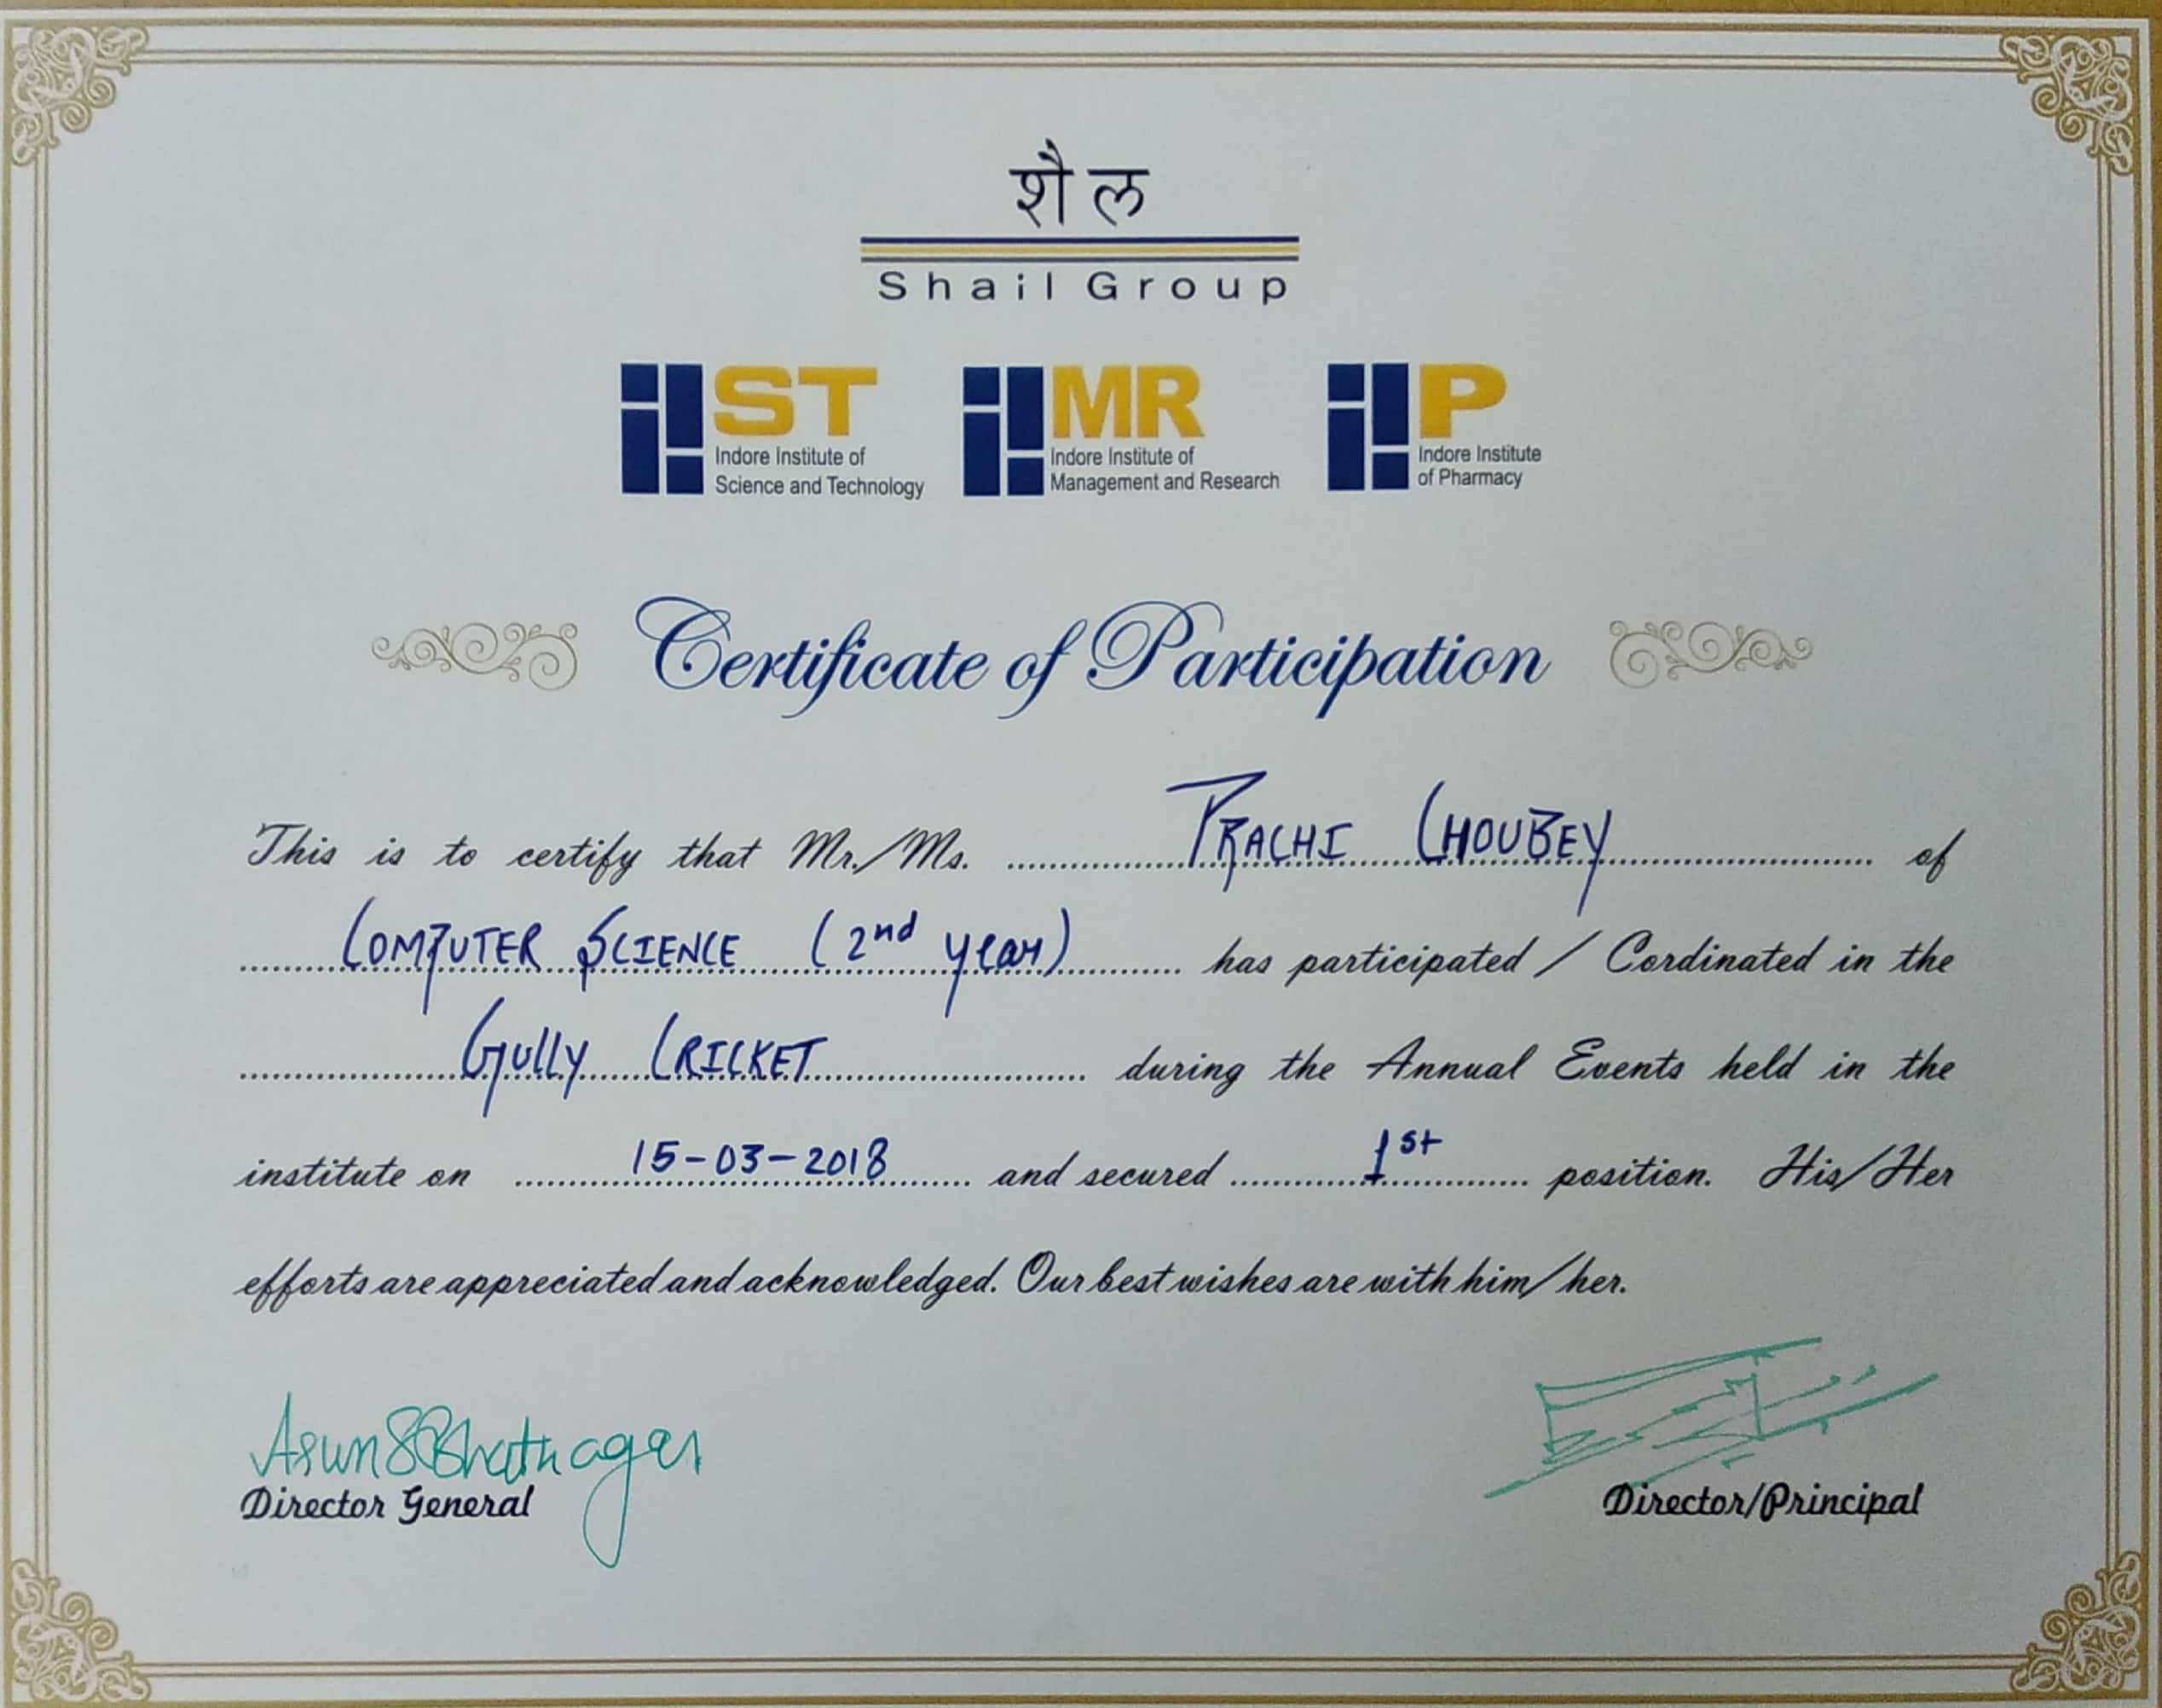 शैल
Shail Group
IIST IIMR IIP
Indore Institute of Science and Technology
Indore Institute of Management and Research
Indore Institute of Pharmacy
Certificate of Participation
This is to certify that Mr./Ms. PRACHI CHOUBEY of
COMPUTER SCIENCE (2nd year) has participated / Cordinated in the
GULLY CRICKET during the Annual Events held in the
institute on 15-03-2018 and secured 1st position. His/Her
efforts are appreciated and acknowledged. Our best wishes are with him/her.
Arun S Bhatnagar
Director General Director/Principal